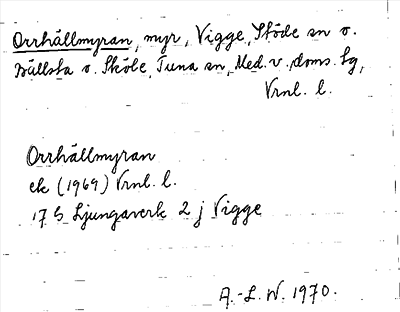 Orrhällmyran, myr, Vigge, Stöde sn o.
Bällsta o. Sköle, Tuna sn, Med. v. doms. sg,
Vrnl. l.
Orrhällmyran
ek (1969) Vrnl. l.
17 G Ljungaverk 2 j Vigge
A.-L. W. 1970.